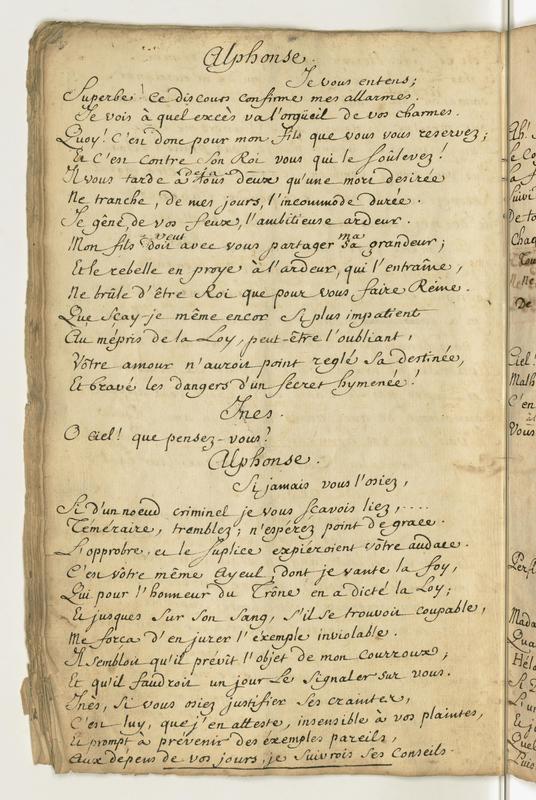 Alphonse.
Je vous entens;
Superbe! ce discours confirme mes allarmes.
Je vois à quel excès va l'orgüeil de vos charmes.
Quoy! C'est donc pour mon fils que vous vous reservez;
Et C'est contre Son Roi vous qui le soulevez!
deja
Il vous tarde à tous deux qu'une mort desirée
Ne tranche, de mes jours, l'incommode durée.
Je gêne, de vos feux, l'ambitieuse ardeur.
veut ma
Mon fils doit avec vous partager sa grandeur;
Et le rebelle en proye à l'ardeur, qui l'entraîne,
Ne brûle d'être Roi que pour vous faire Reine.
Que Scay-je même encor Si plus impatient
Au mépris de la Loy, peut-être l'oubliant,
Vôtre amour n'auroit point reglé sa destinée,
Et bravé les dangers d'un Secret hymenée!
Ines.
O ciel! que pensez-vous?
Alphonse.
Si jamais vous l'osiez,
Si d'un noeud criminel je vous scavois liez,....
Téméraire, tremblez; n'espérez point de grace.
L'opprobre, et le Suplice expiëroient vôtre audace.
C'est vôtre même Ayeul, dont je vante la foy,
Qui pour l'honneur du Trône en a dicté la Loy;
Et jusques Sur Son Sang, s'il se trouvoit coupable,
Me forca d'en jurer l'exemple inviolable.
Il sembloit qu'il prévît l'objet de mon Courroux;
Et qu'il faudroit un jour Le Signaler Sur vous.
Inès, Si vous osiez justifier Ses craintes,
C'est luy, que j'en atteste, insensible à vos plaintes,
Et prompt à prévenir des exemples pareils,
Aux depens de vos jours, je Suivrois Ses Conseils.